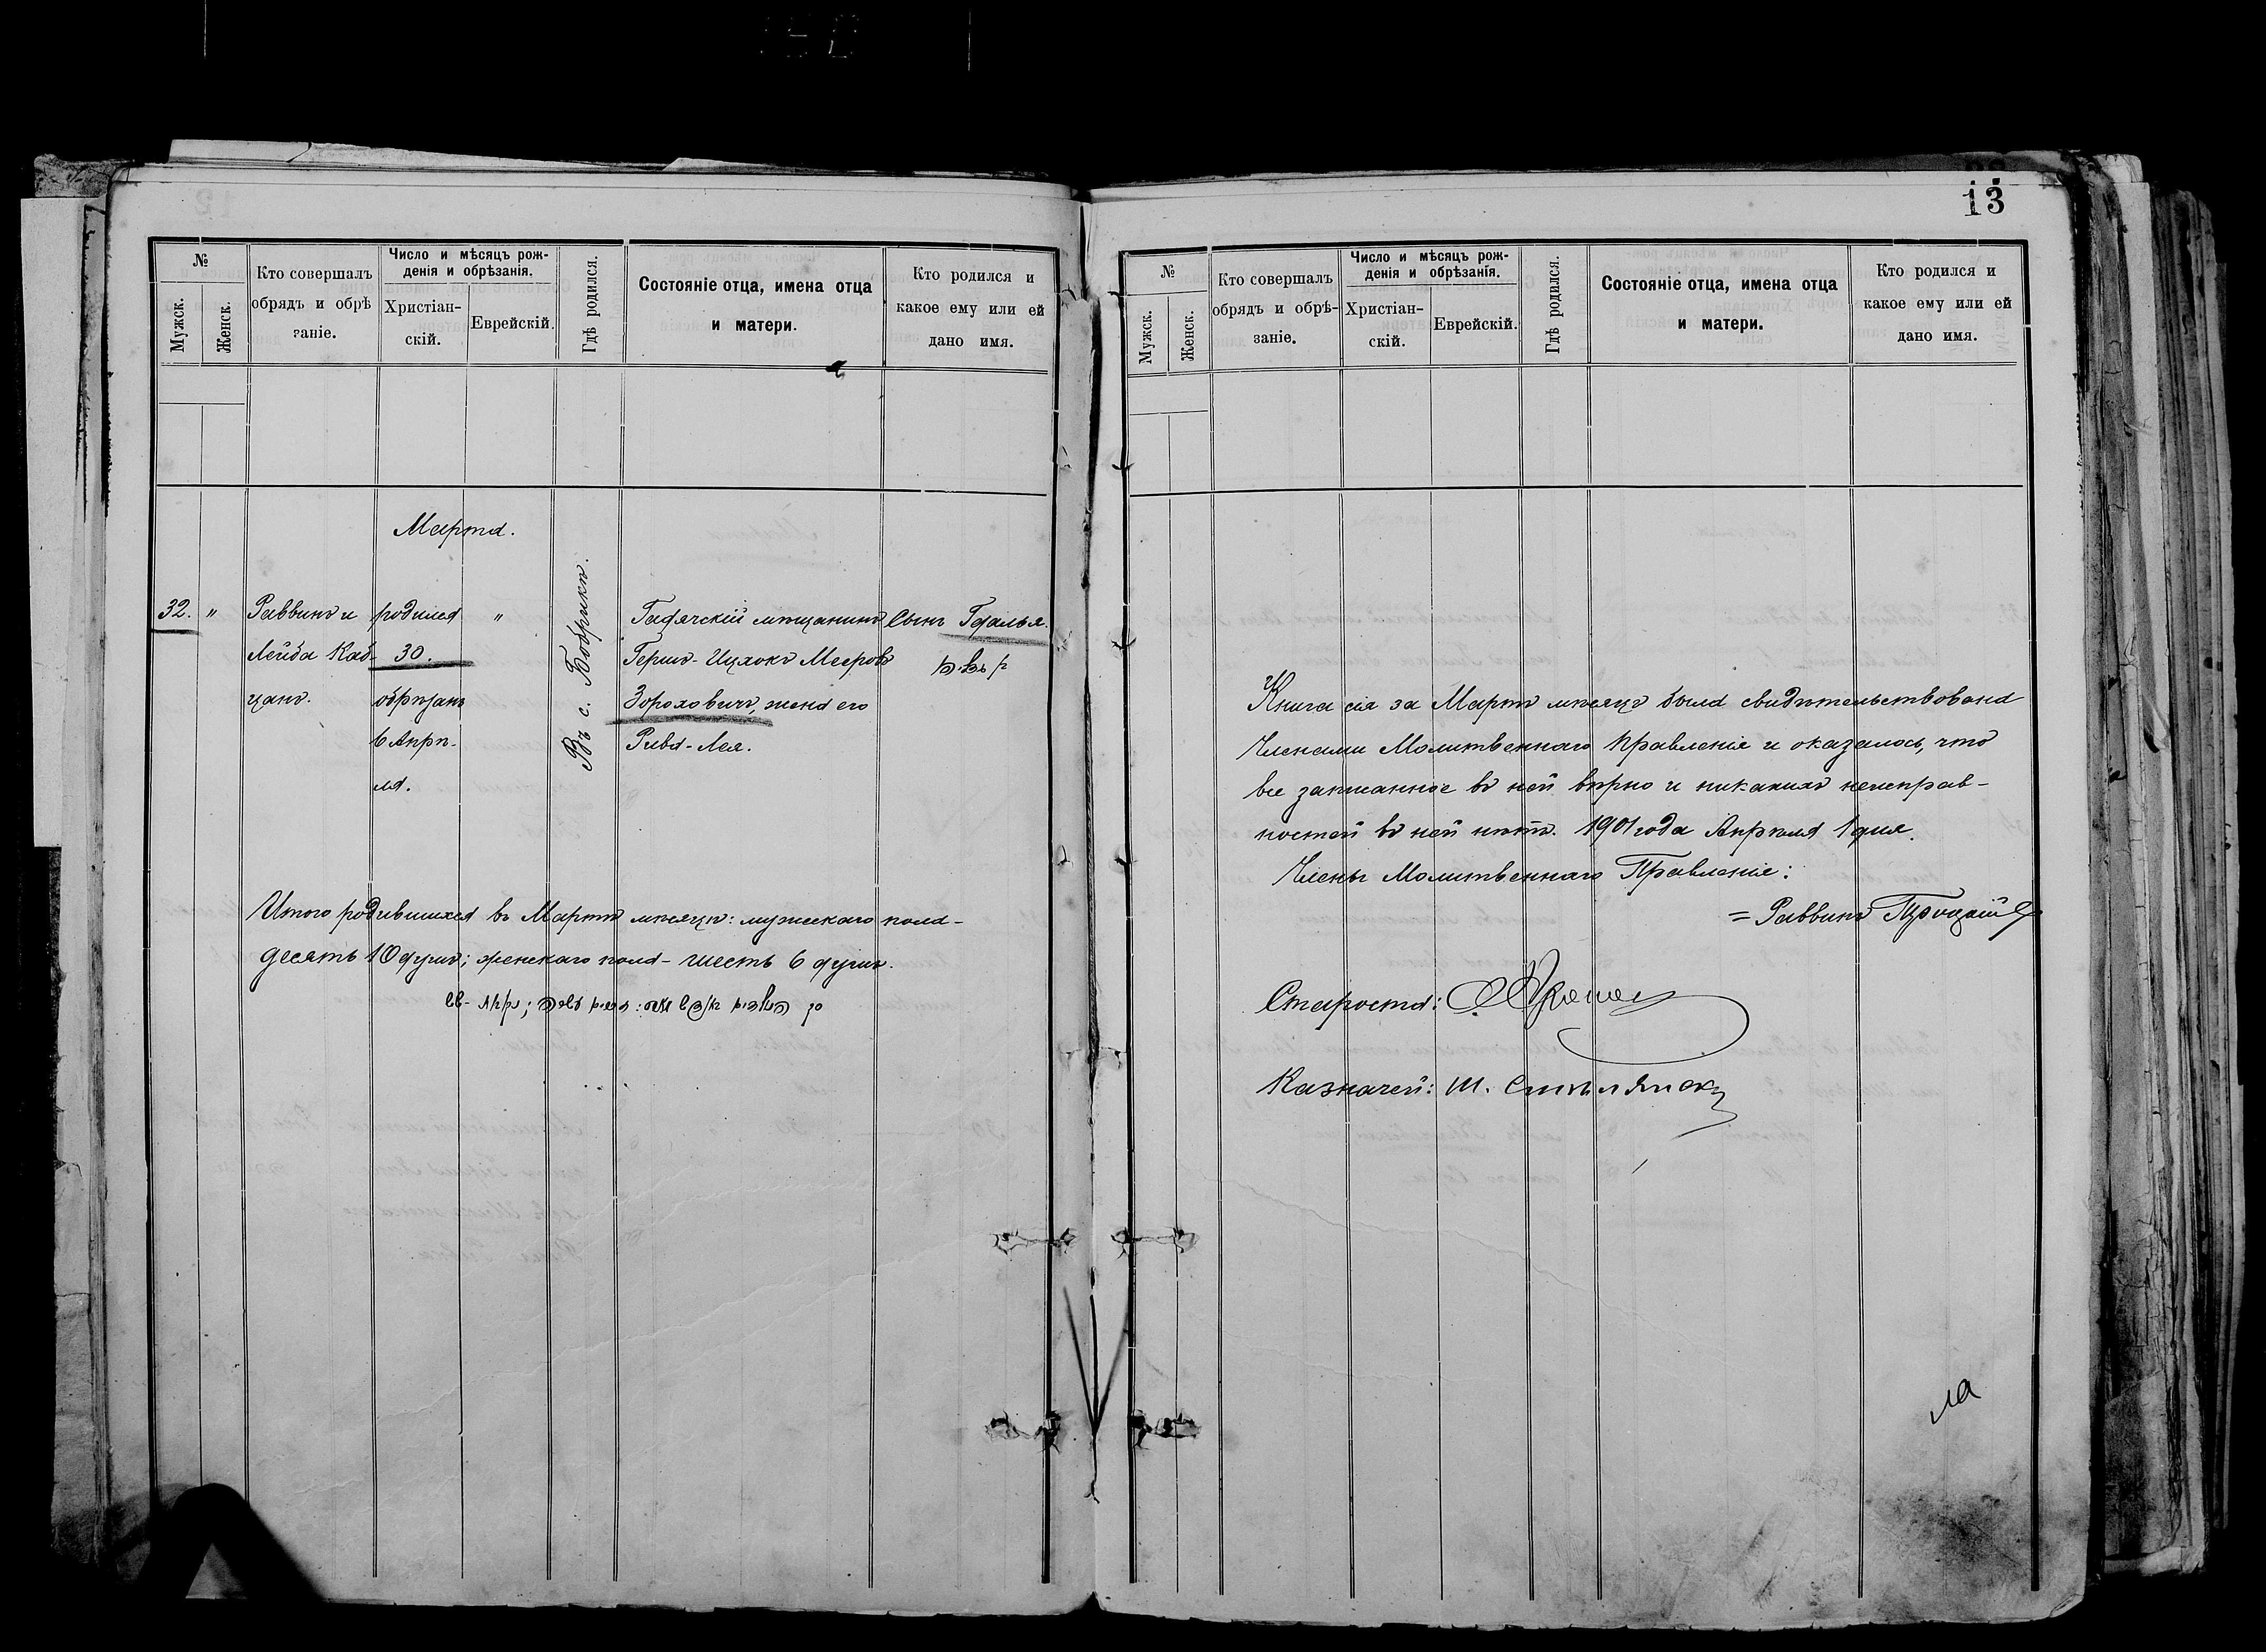 №
Мужск.
Женск.
Кто совершалъ
обрядъ и обрѣ
заніе.
Число и мѣсяцъ рож-
денія и обрѣзанія.
Христіан-
скій.
Еврейскій.
Гдѣ родился.
Состояніе отца, имена отца
и матери.
Кто родился и
какое ему или ей
дано имя.
Марта.
32.
"
Раввинъ и
Лейба Каб-
цанъ.
родился
30.
обрѣзанъ
6 Апрѣ-
ля.
"
Въ с. Бобрикѣ.
Гадячскій мѣщанинъ
Гершъ-Ицхокъ Мееровъ
Зороховичъ, жена его
Рива-Лея.
Сынъ Гдалья.
Итого родившихся въ Мартѣ мѣсяцѣ: мужескаго пола-
десять 10 душъ; женскаго пола- шесть 6 душъ.
13
№
Мужск.
Женск.
Кто совершалъ
обрядъ и обрѣ-
заніе.
Число и мѣсяцъ рож-
денія и обрѣзанія.
Христіан-
скій.
Еврейскій.
Гдѣ родился.
Состояніе отца, имена отца
и матери.
Кто родился и
какое ему или ей
дано имя.
Книга сія за Мартъ мѣсяцъ была свидѣтельствована
Членами Молитвеннаго Правленія и оказалось, что
все записанное въ ней вѣрно и никакихъ неисправ-
ностей въ ней нѣтъ. 1901 года Апрѣля 1 дня.
Члены Молитвеннаго Правленія:
= Раввинъ
Староста:
Казначей: Ш.